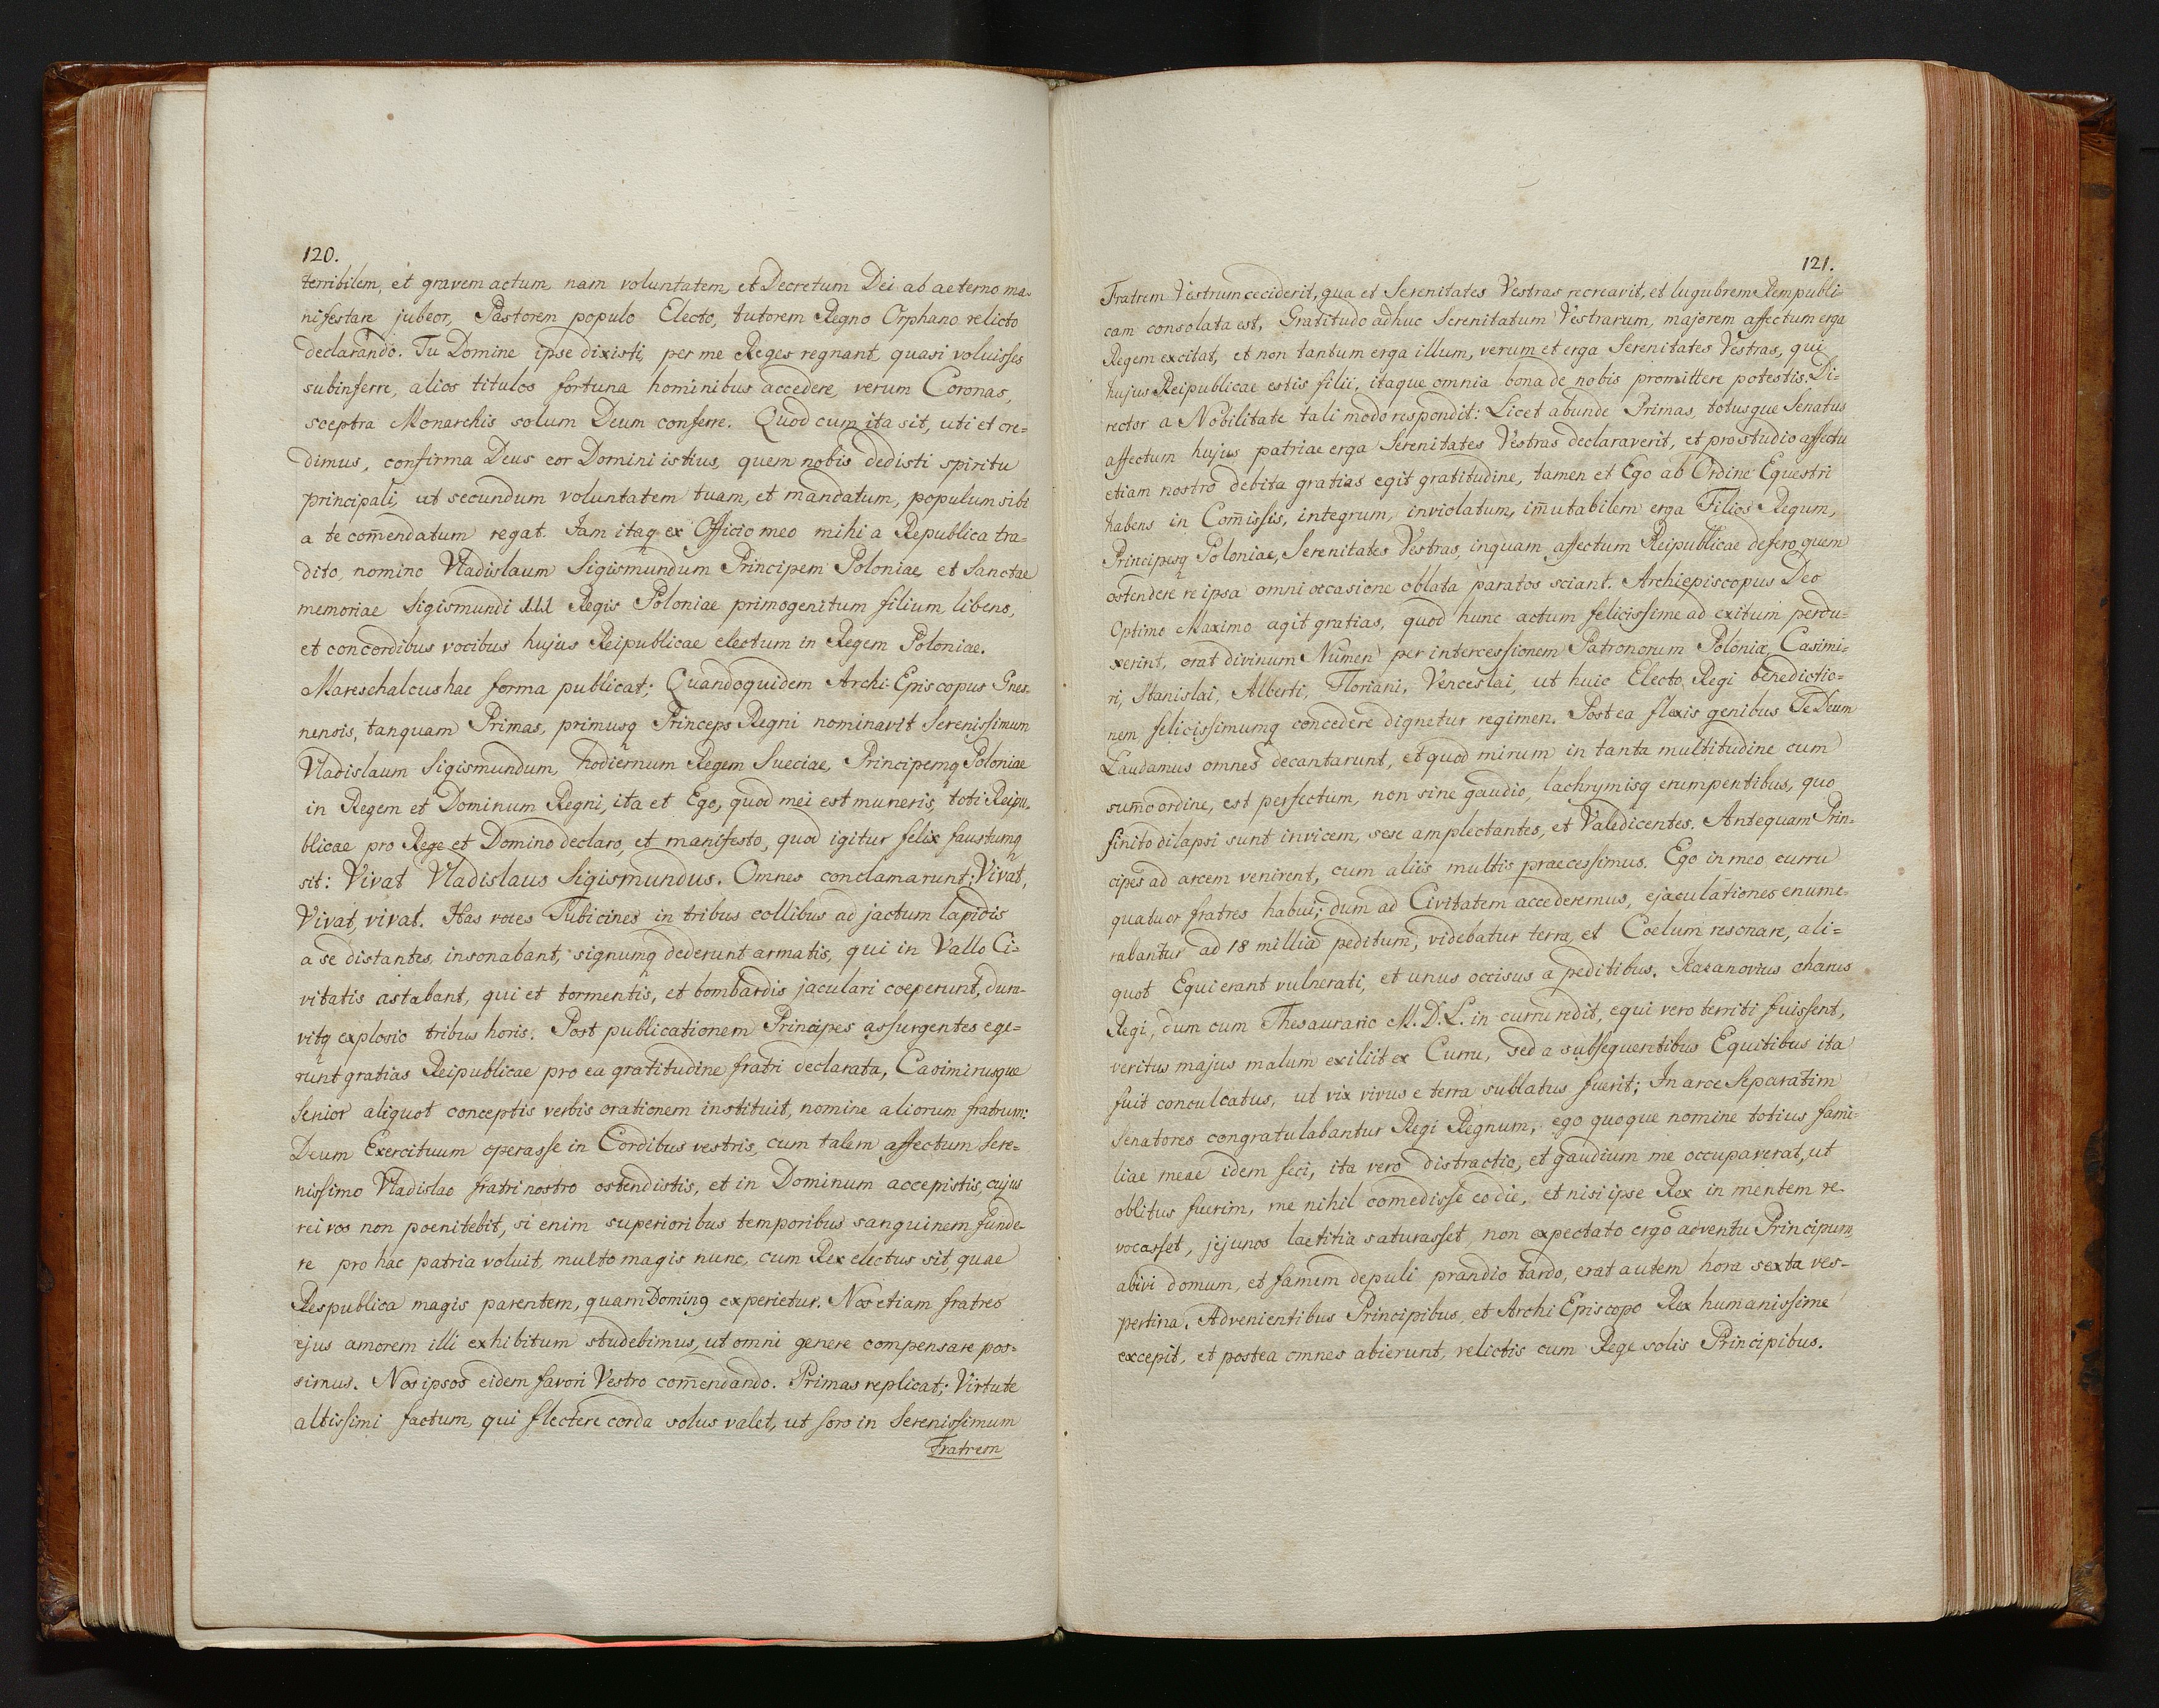 120.
terribilem, et gravem actum, nam voluntatem, et Decretum Dei ab aeterno ma-
nifestare jubeor, Pastorem populo Electo, tutorem Regno Orphano relicto
declarando. Tu Domine ipse dixisti, per me Reges regnant, quasi voluisses
subinferre, alios titulos fortuna hominibus accedere, verum Coronas,
sceptra Monarchis solum Deum conferre. Quod cum ita sit, uti et cre=
dimus, confirma Deus cor Domini istius, quem nobis dedisti spiritu
principali, ut secundum voluntatem tuam, et mandatum, populum sibi
a te com̄endatum regat. Iam itaq ex Officio meo mihi a Republica tra=
dito, nomino Vladislaum Sigismundum Principem Poloniae, et Sanctae
memoriae Sigismundi III Regis Poloniae primogenitum filium libens,
et concordibus vocibus hujus Reipublicae electum in Regem Poloniae.
Mareschalcus hac forma publicat; Quandoquidem Archi-Episcopus Gnes-
nensis, tanquam Primas, primusq Princeps Regni nominavit Serenissimum
Vladislaum Sigismundum, hodiernum Regem Sueciae, Principemq Poloniae
in Regem et Dominum Regni, ita et Ego, quod mei est muneris, toti Reipu-
blicae pro Rege et Domino declaro, et manifesto, quod igitur felix faustumq
sit: Vivat Vladislaus Sigismundus. Omnes conclamarunt; Vivat,
Vivat, vivat. Has voces Tubicines in tribus collibus ad jactum lapidis
a se distantes, insonabant, signumq dederunt armatis, qui in Vallo Ci=
vitatis astabant, qui et tormentis, et bombardis jaculari coeperunt, dura-
vitq explosio tribus horis. Post publicationem Principes assurgentes ege=
runt gratias Reipublicae pro ea gratitudine fratri declarata, Casimirusque
Senior aliquot conceptis verbis orationem instituit, nomine aliorum fratrum:
Deum Exercituum operasse in Cordibus vestris, cum talem affectum Sere=
nissimo Vladislao fratri nostro ostendistis, et in Dominum accepistis, cujus
rei vos non poenitebit, si enim superioribus temporibus sanguinem funde-
re pro hac patria voluit, multo magis nunc, cum Rex electus sit, quae
Respublica magis parentem, quam Dominq experietur. Nos etiam fratres
ejus amorem illi exhibitum studebimus, ut omni genere compensare pos=
simus. Nos ipsos eidem favori Vestro com̄endando. Primas replicat; Virtute
altissimi factum, qui flectere corda solus valet, ut sors in Serenissimum
Fratrem
121.
Fratrem Vestrum ceciderit, qua et Serenitates Vestras recreavit, et lugubrem Rempubli-
cam consolata est, Gratitudo adhuc Serenitatum Vestrarum, majorem affectum erga
Regem excitat, et non tantum erga illum, verum et erga Serenitates Vestras, qui
hujus Reipublicae estis filii, itaque omnia bona de nobis promittere potestis. Di=
rector a Nobilitate tali modo respondit: Licet abunde Primas, totusque Senatus
affectum hujus patriae erga Serenitates Vestras declaraverit, et pro studio affectu
etiam nostro debita gratias egit gratitudine, tamen et Ego ab Ordine Equestri
habens in Com̄issis, integrum, inviolatum, im̄utabilem erga Filios Regum,
Principesq Poloniae, Serenitates Vestras, inquam, affectum Reipublicae defero, quem
ostendere re ipsa omni occasione oblata paratos sciant. Archiepiscopus Deo
Optimo Maximo agit gratias, quod hunc actum felicissime ad exitum perdu=
xerint, orat divinum Numen per intercessionem Patronorum Poloniæ, Casimi=
ri, Stanislai, Alberti, Floriani, Venceslai, ut huic Electo Regi benedictio=
nem felicissimumq concedere dignetur regimen. Postea flexis genibus Te Deum
Laudamus omnes decantarunt, et quod mirum in tanta multitudine cum
sum̄o ordine, est perfectum, non sine gaudio, lachrymisq erumpentibus, quo
finito dilapsi sunt invicem, sese amplectantes, et Valedicentes. Antequam Prin-
cipes ad arcem venirent, cum aliis multis praecessimus. Ego in meo curru
quatuor fratres habui; dum ad Civitatem accederemus, ejaculationes enume-
rabantur ad 18 millia peditum, videbatur terra, et Coelum resonare, ali=
quot Equi erant vulnerati, et unus occisus a peditibus. Kazanovius charus
Regi, dum cum Thesaurario M. D. L. in curru redit, equi vero territi fuissent,
veritus majus malum exiliit ex Curru, sed a subsequentibus Equitibus ita
fuit conculcatus, ut vix vivus e terra sublatus fuerit; In arce Separatim
Senatores congratulabantur Regi Regnum, ego quoque nomine totius fami-
liae meae idem feci, ita vero distractio, et gaudium me occupaverat, ut
oblitus fuerim, me nihil comedisse eo die, et nisi ipse Rex in mentem re-
vocasset, jejunos laetitia saturasset, non expectato ergo adventu Principum,
abivi domum, et famem depuli prandio tardo, erat autem hora sexta ves-
pertina. Advenientibus Principibus, et Archi Episcopo Rex humanissime
excepit, et postea omnes abierunt, relictis cum Rege solis Principibus.